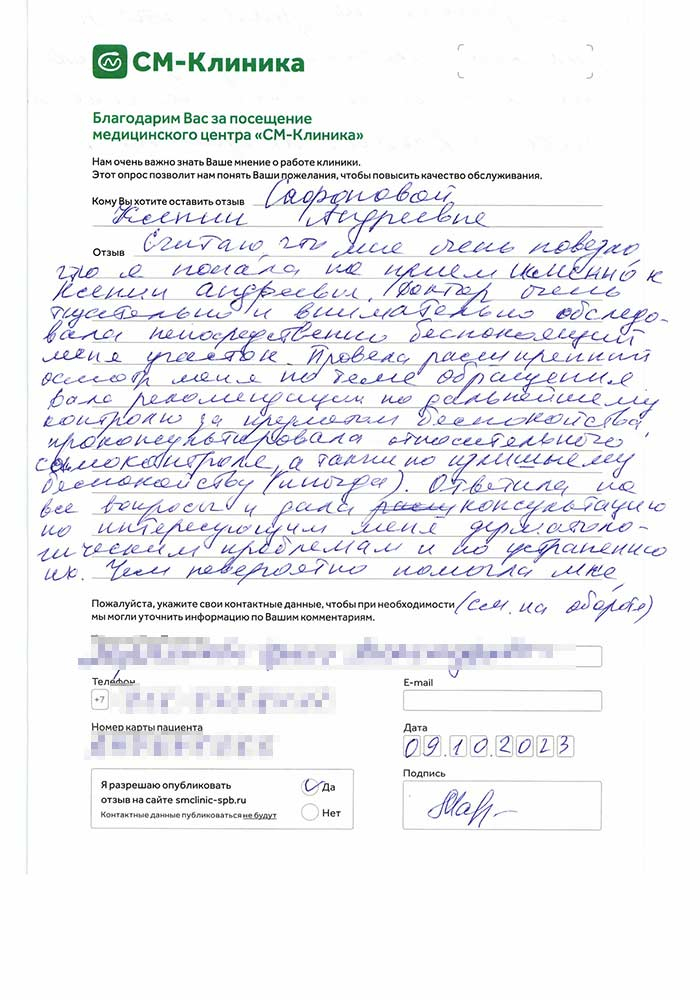 СМ-Клиника
Благодарим Вас за посещение
медицинского центра «СМ-Клиника»
Нам очень важно знать Ваше мнение о работе клиники.
Этот опрос позволит нам понять Ваши пожелания, чтобы повысить качество обслуживания.
Кому Вы хотите оставить отзыв Сафроновой
Ксении Андреевне
Отзыв Считаю, что мне очень повезло,
что я попала на прием именно к
Ксении Андреевы. Доктор очень
тщательно и внимательно обследо-
вала непосредственно беспокоящий
меня участок. Провела расширенный
осмотр меня по теме обращения
Дала рекомендации по дальнейшему
контролю за предметом беспокойства,
проконсультировала относительного
самоконтроля, а также по излишнему
беспокойству (иногда). Ответила на
все вопросы и дала консультацию
по интересующим меня дерматоло-
гическим проблемам и по устранению
их. Чем невероятно помогла мне
Пожалуйста, укажите свои контактные данные, чтобы при необходимости (см. на обороте)
мы могли уточнить информацию по Вашим комментариям.
Телефон
E-mail
+7
Номер карты пациента
Дата
09.10.2023
Подпись
Я разрешаю опубликовать
отзыв на сайте smclinic-spb.ru
Контактные данные публиковаться не будут
Да
Нет